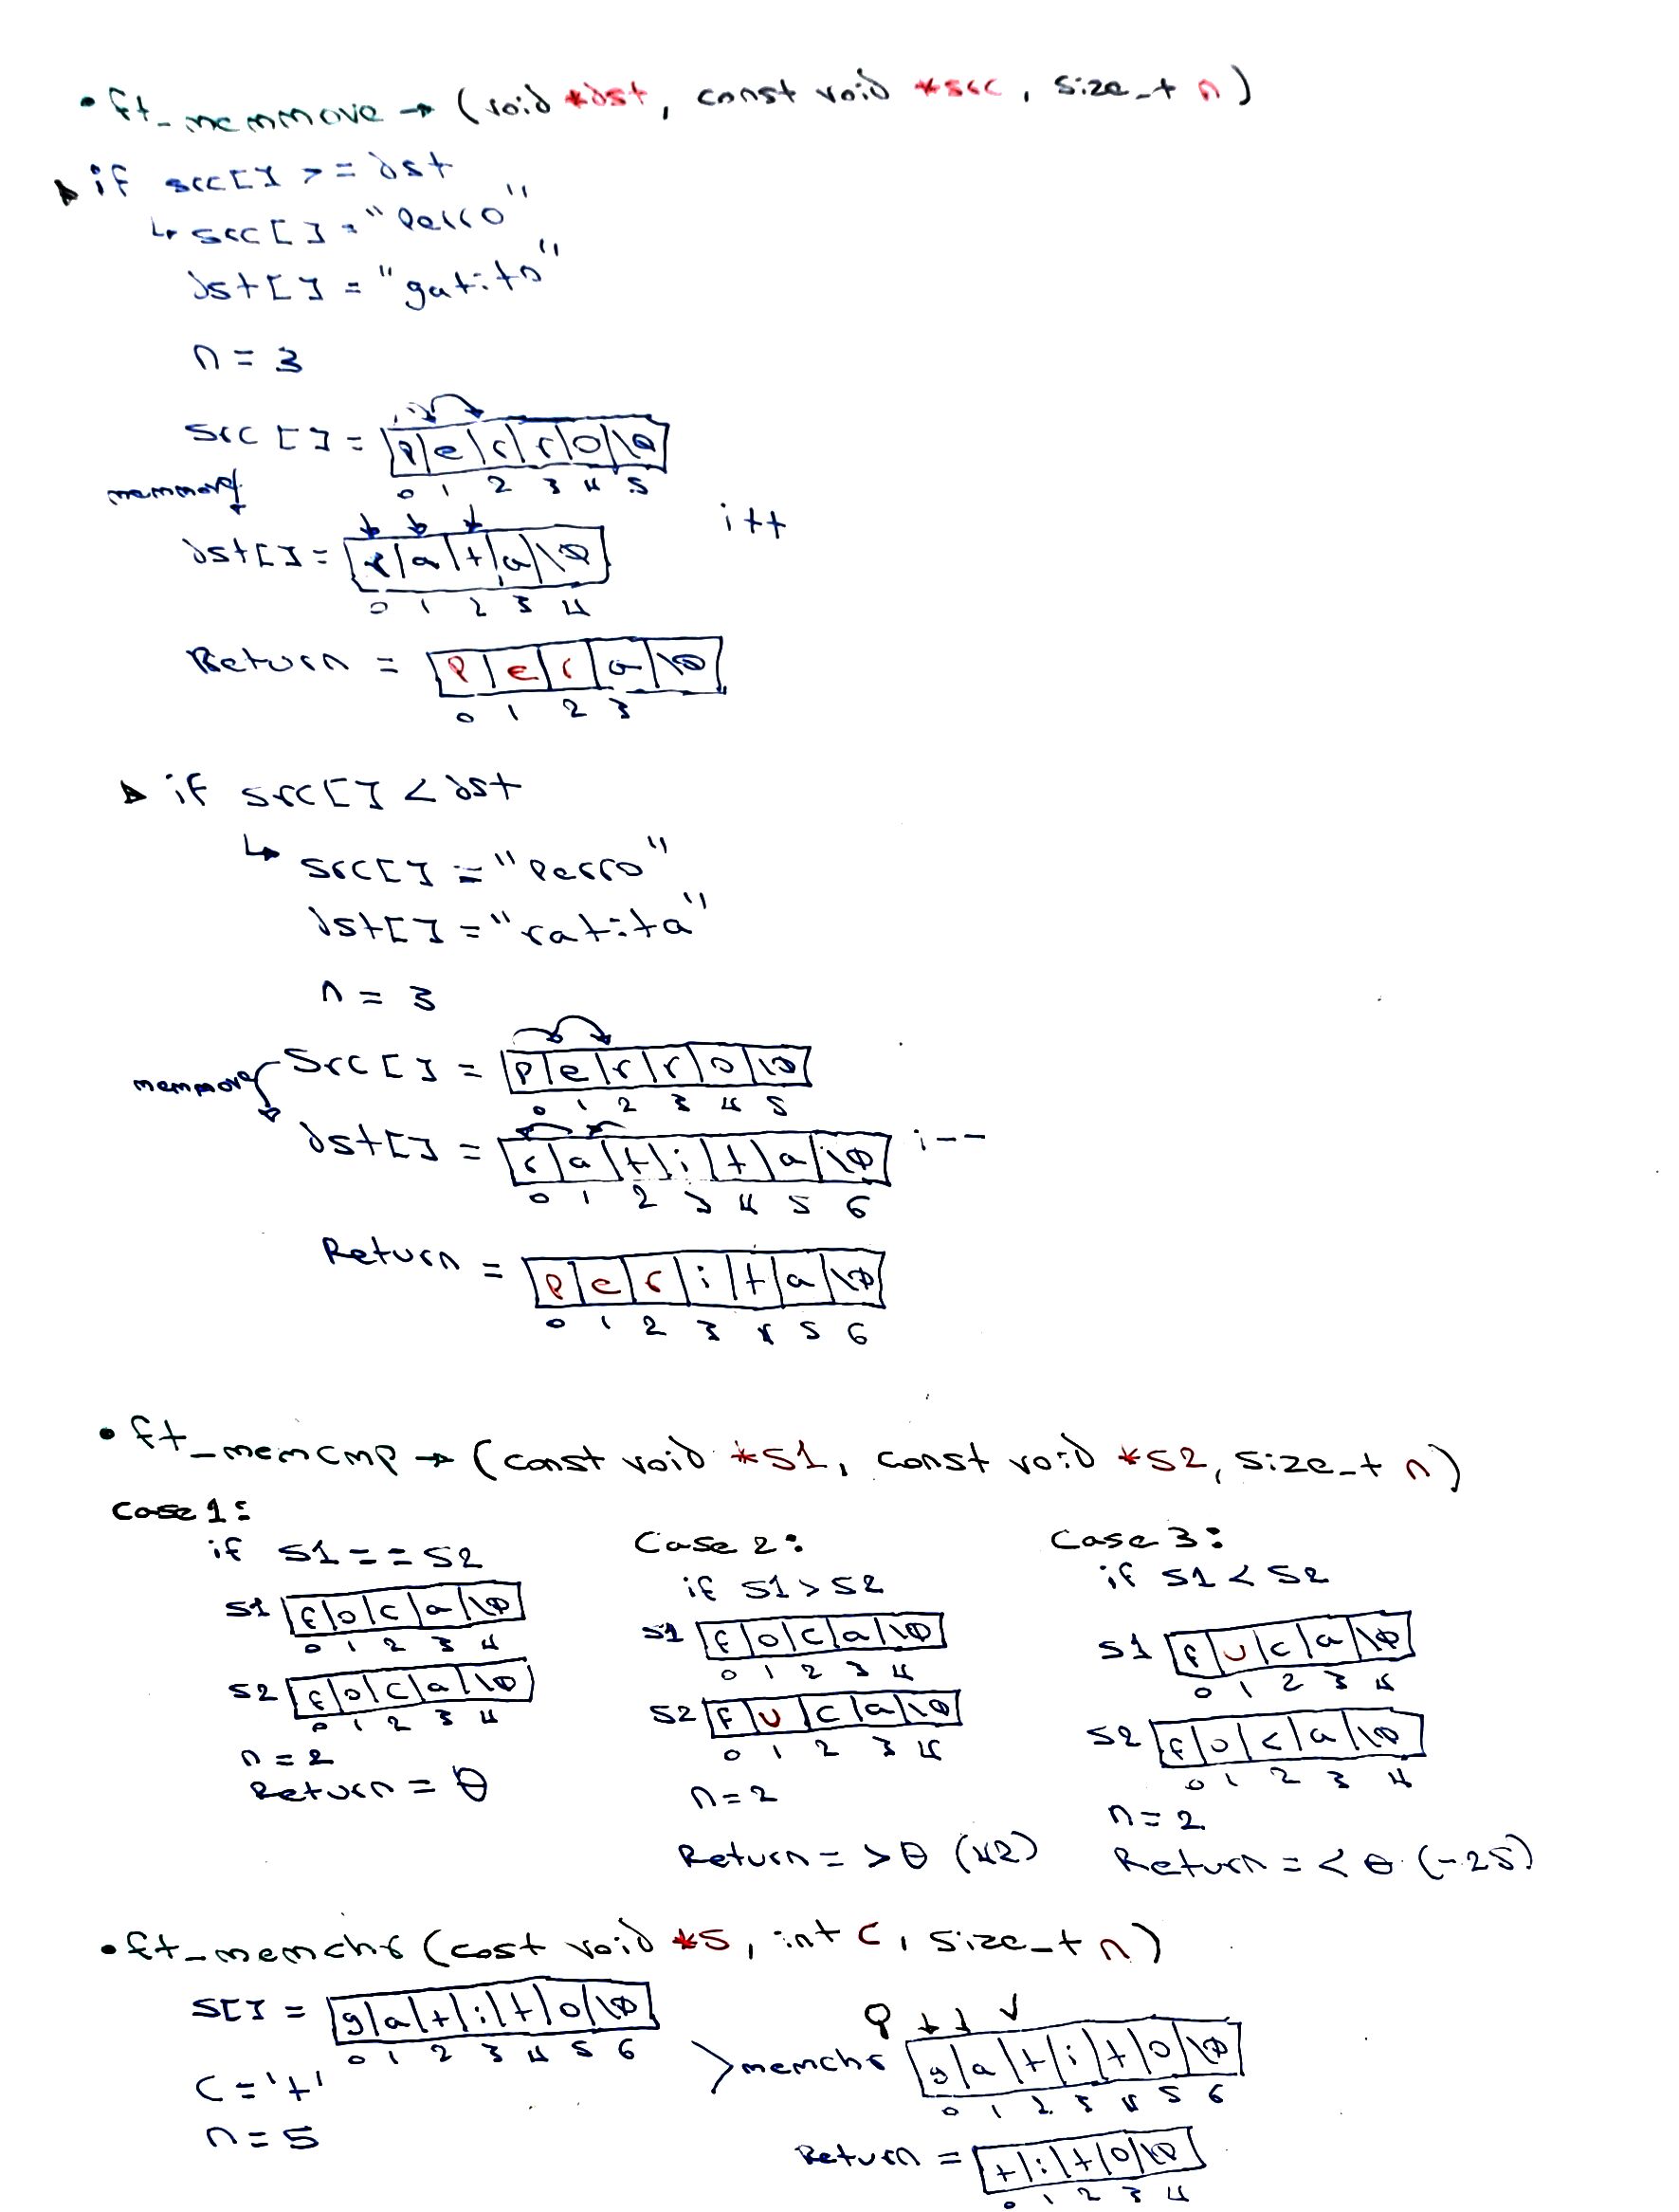 • ft_memmove → (void *dst, const void *src, size_t n)
▸ if src[] >= dst
↳ src[] = "Perro"
dst[] = "gatito"
n = 3
src[] = |P|e|r|r|o|\0|
0 1 2 3 4 5
memmove
i++
dst[] = |r|a|t|a|\0|
0 1 2 3 4
Return = |P|e|r|a|\0|
0 1 2 3
▸ if src[] < dst
↳ src[] = "Perro"
dst[] = "ratita"
n = 3
Src[] = |P|e|r|r|o|\0|
memmove
0 1 2 3 4 5
dst[] = |r|a|t|i|t|a|\0| i--
0 1 2 3 4 5 6
Return = |P|e|r|i|t|a|\0|
0 1 2 3 4 5 6
• ft_memcmp → (const void *s1, const void *s2, size_t n)
Case 1:
if S1 == S2
S1 |f|o|c|a|\0|
0 1 2 3 4
S2 |f|o|c|a|\0|
0 1 2 3 4
n = 2
Return = 0
Case 2:
if S1 > S2
S1 |f|o|c|a|\0|
0 1 2 3 4
S2 |f|u|c|a|\0|
0 1 2 3 4
n = 2
Return = > 0 (42)
Case 3:
if S1 < S2
S1 |f|u|c|a|\0|
0 1 2 3 4
S2 |f|o|c|a|\0|
0 1 2 3 4
n = 2
Return = < 0 (-25)
• ft_memchr (cost void *s, int c, size_t n)
S[] = |g|a|t|i|t|o|\0|
0 1 2 3 4 5 6
C = 't'
n = 5
> memchr |g|a|t|i|t|o|\0|
0 1 2 3 4 5 6
Return = |t|i|t|o|\0|
0 1 2 3 4